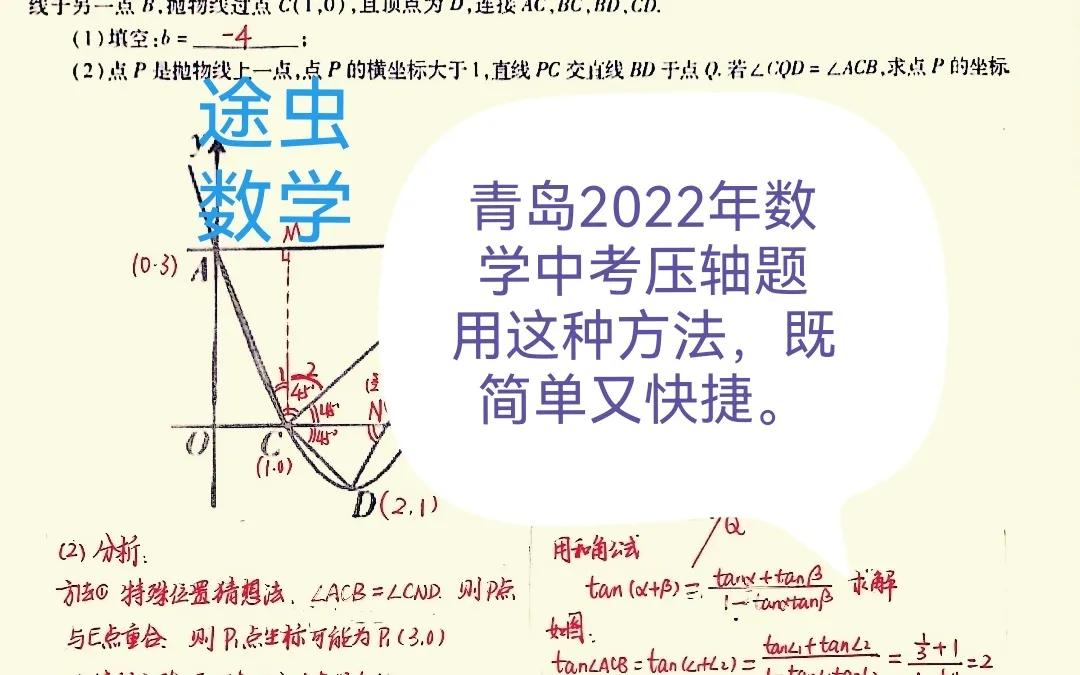 线于另一点B,抛物线过点C(1,0),且顶点为D,连接AC,BC,BD,CD.
(1)填空:b=-4;
(2)点P是抛物线上一点,点P的横坐标大于1,直线PC交直线BD于点Q.若∠CQD=∠ACB,求点P的坐标.
途虫
数学
青岛2022年数
学中考压轴题
用这种方法，既
简单又快捷。
y
M
(0·3) A
1 2
45°
45°
N
O C
45°
(1·0)
D(2,1)
Q
(2)分析:
方法① 特殊位置猜想法、∠ACB=∠CND. 则P点
与E点重合. 则P₁点坐标可能为P₁(3,0)
用和角公式
tan(α+β)=(tanα+tanβ)/(1-tanαtanβ) 求解
如图:
tan∠ACB=tan(∠1+∠2)=
tan∠1+tan∠2
=
1/3+1
=2